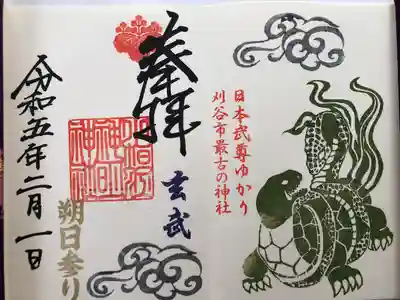 日本武尊ゆかり
刈谷市最古の神社
奉拝
玄武
朔日参り
令和五年二月一日